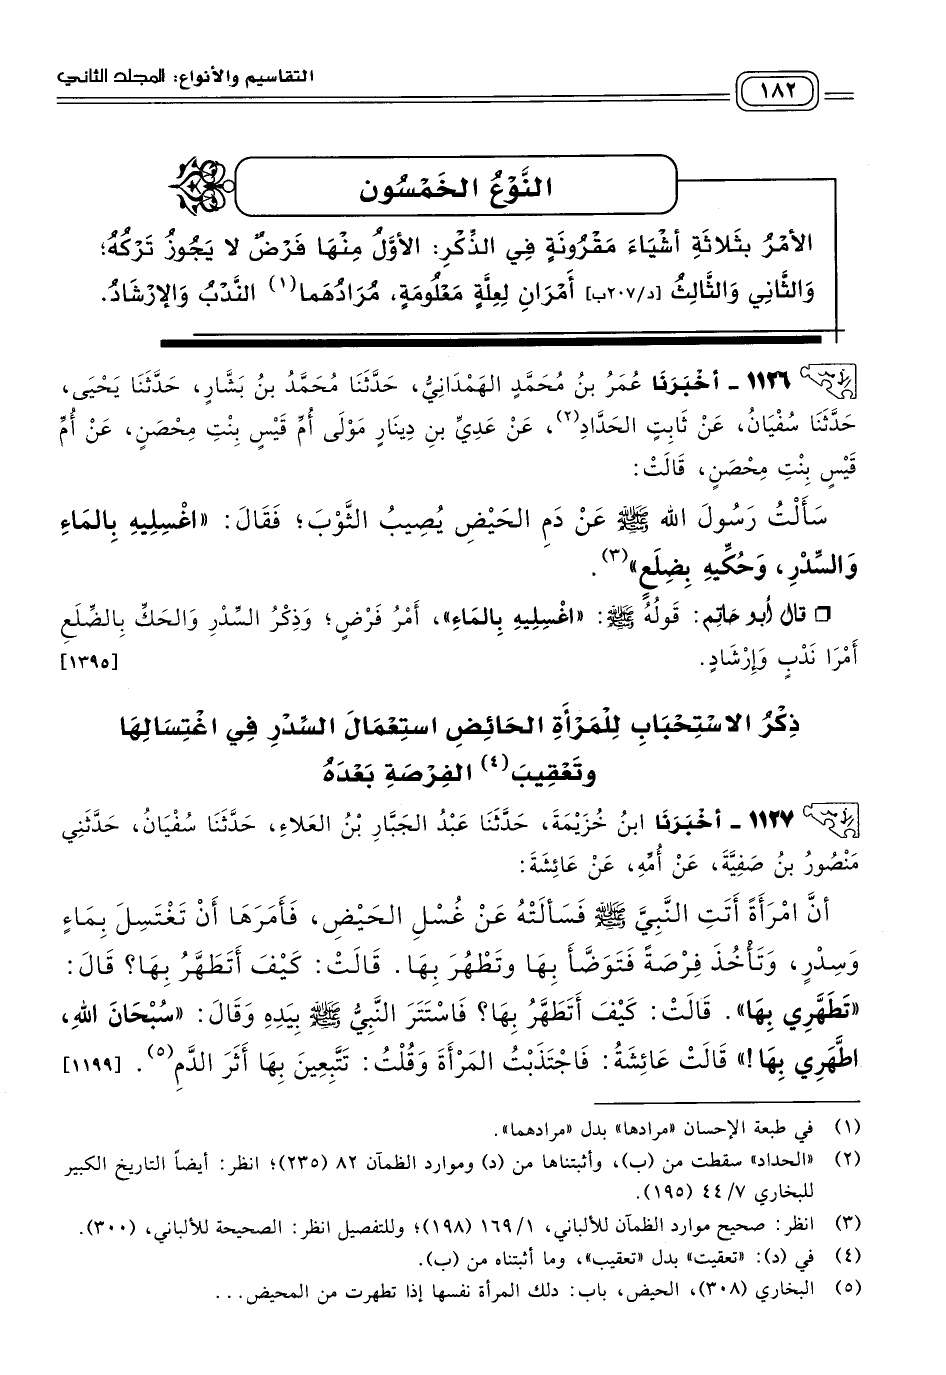 التقاسيم والأنواع: المجلد الثاني
١٨٢
النَّوْعُ الخَمْسُون
الأمْرُ بثَلاثَةِ أشْيَاءَ مَقْرُونَةٍ فِي الذِّكْرِ: الأوَّلُ مِنْهَا فَرْضٌ لا يَجُوزُ تَرْكُهُ؛
وَالثَّانِي وَالثَّالِثُ [د/٢٠٧ب] أمْرَانِ لِعِلَّةٍ مَعْلُومَةٍ، مُرَادُهُما(١) النَّدْبُ وَالإرْشَادُ.
١١٢٦ - أخْبَرَنَا عُمَرُ بنُ مُحَمَّدٍ الهَمْدَانِيُّ، حَدَّثَنَا مُحَمَّدُ بنُ بَشَّارٍ، حَدَّثَنَا يَحْيَى،
حَدَّثَنَا سُفْيَانُ، عَنْ ثَابِتٍ الحَدَّادِ(٢)، عَنْ عَدِيِّ بنِ دِينَارٍ مَوْلَى أُمِّ قَيْسٍ بِنْتِ مِحْصَنٍ، عَنْ أُمِّ
قَيْسٍ بِنْتِ مِحْصَنٍ، قَالَتْ:
سَأَلْتُ رَسُولَ الله ﷺ عَنْ دَمِ الحَيْضِ يُصِيبُ الثَّوْبَ؛ فَقَالَ: «اغْسِلِيهِ بِالمَاءِ
وَالسِّدْرِ، وَحُكِّيهِ بِضِلَعٍ»(٣).
❒ قال أبو حاتِم: قَولُهُ ﷺ: «اغْسِلِيهِ بِالمَاءِ»، أَمْرُ فَرْضٍ؛ وَذِكْرُ السِّدْرِ وَالحَكِّ بِالضِّلَعِ
أَمْرَا نَدْبٍ وَإِرْشَادٍ. [١٣٩٥]
ذِكْرُ الاسْتِحْبَابِ لِلْمَرْأَةِ الحَائِضِ اسْتِعْمَالَ السِّدْرِ فِي اغْتِسَالِهَا
وتَعْقِيبَ(٤) الفِرْصَةِ بَعْدَهُ
١١٢٧ - أخْبَرَنَا ابنُ خُزَيْمَةَ، حَدَّثَنَا عَبْدُ الجَبَّارِ بْنُ العَلاءِ، حَدَّثَنَا سُفْيَانُ، حَدَّثَنِي
مَنْصُورُ بنُ صَفِيَّةَ، عَنْ أُمِّهِ، عَنْ عَائِشَةَ:
أنَّ امْرَأَةً أَتَتِ النَّبِيَّ ﷺ فَسَأَلَتْهُ عَنْ غُسْلِ الحَيْضِ، فَأَمَرَهَا أَنْ تَغْتَسِلَ بِمَاءٍ
وَسِدْرٍ، وَتَأْخُذَ فِرْصَةً فَتَوَضَّأَ بِهَا وتَطْهُرَ بِهَا. قَالَتْ: كَيْفَ أَتَطَهَّرُ بِهَا؟ قَالَ:
«تَطَهَّرِي بِهَا». قَالَتْ: كَيْفَ أَتَطَهَّرُ بِهَا؟ فَاسْتَتَرَ النَّبِيُّ ﷺ بِيَدِهِ وَقَالَ: «سُبْحَانَ اللهِ،
اطَّهَرِي بِهَا!» قَالَتْ عَائِشَةُ: فَاجْتَذَبْتُ المَرْأَةَ وَقُلْتُ: تَتَّبِعِينَ بِهَا أَثَرَ الدَّمِ(٥). [١١٩٩]
(١) في طبعة الإحسان «مرادها» بدل «مرادهما».
(٢) «الحداد» سقطت من (ب)، وأثبتناها من (د) وموارد الظمآن ٨٢ (٢٣٥)؛ انظر: أيضاً التاريخ الكبير
للبخاري ٤٤/٧ (١٩٥).
(٣) انظر: صحيح موارد الظمآن للألباني، ١٦٩/١ (١٩٨)؛ وللتفصيل انظر: الصحيحة للألباني، (٣٠٠).
(٤) في (د): «تعقيت» بدل «تعقيب»، وما أثبتناه من (ب).
(٥) البخاري (٣٠٨)، الحيض، باب: دلك المرأة نفسها إذا تطهرت من المحيض...